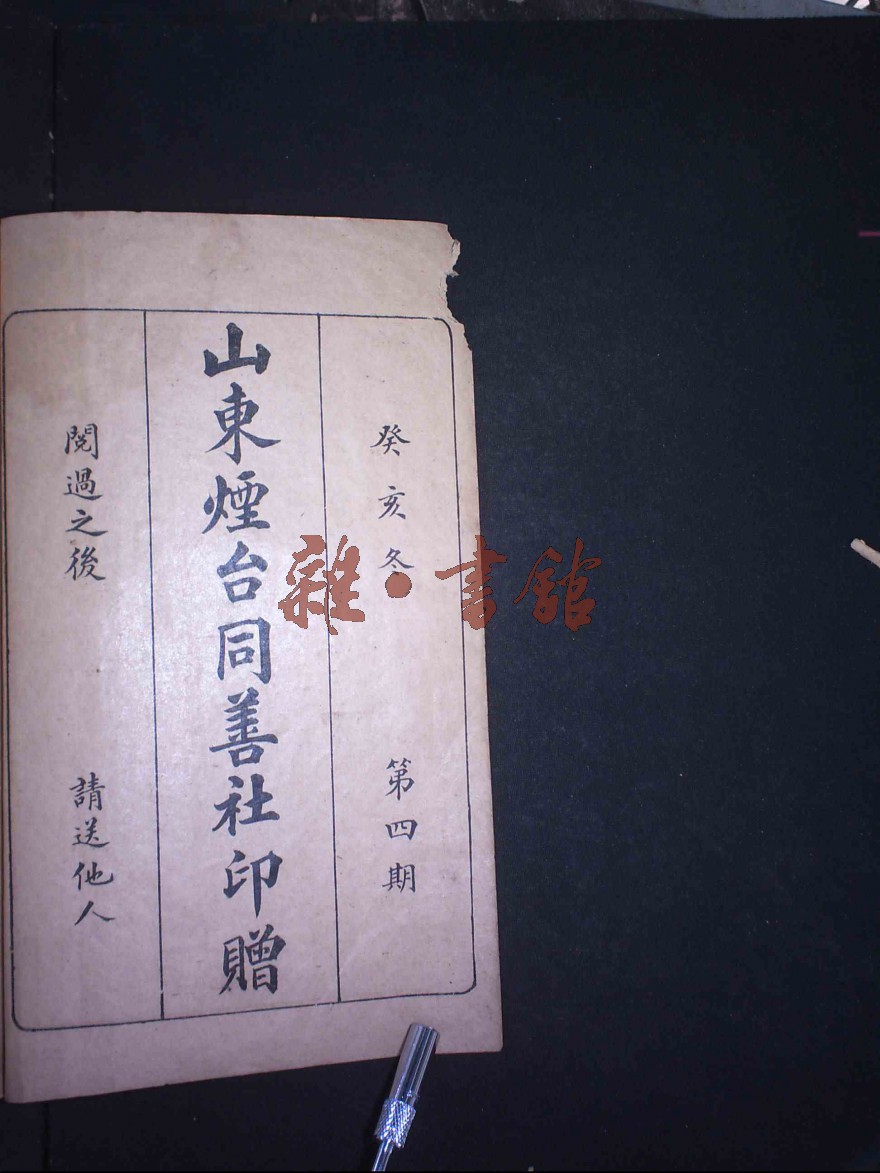 癸亥冬 第四期
山東煙台同善社印贈
閱過之後 請送他人
雜·書館